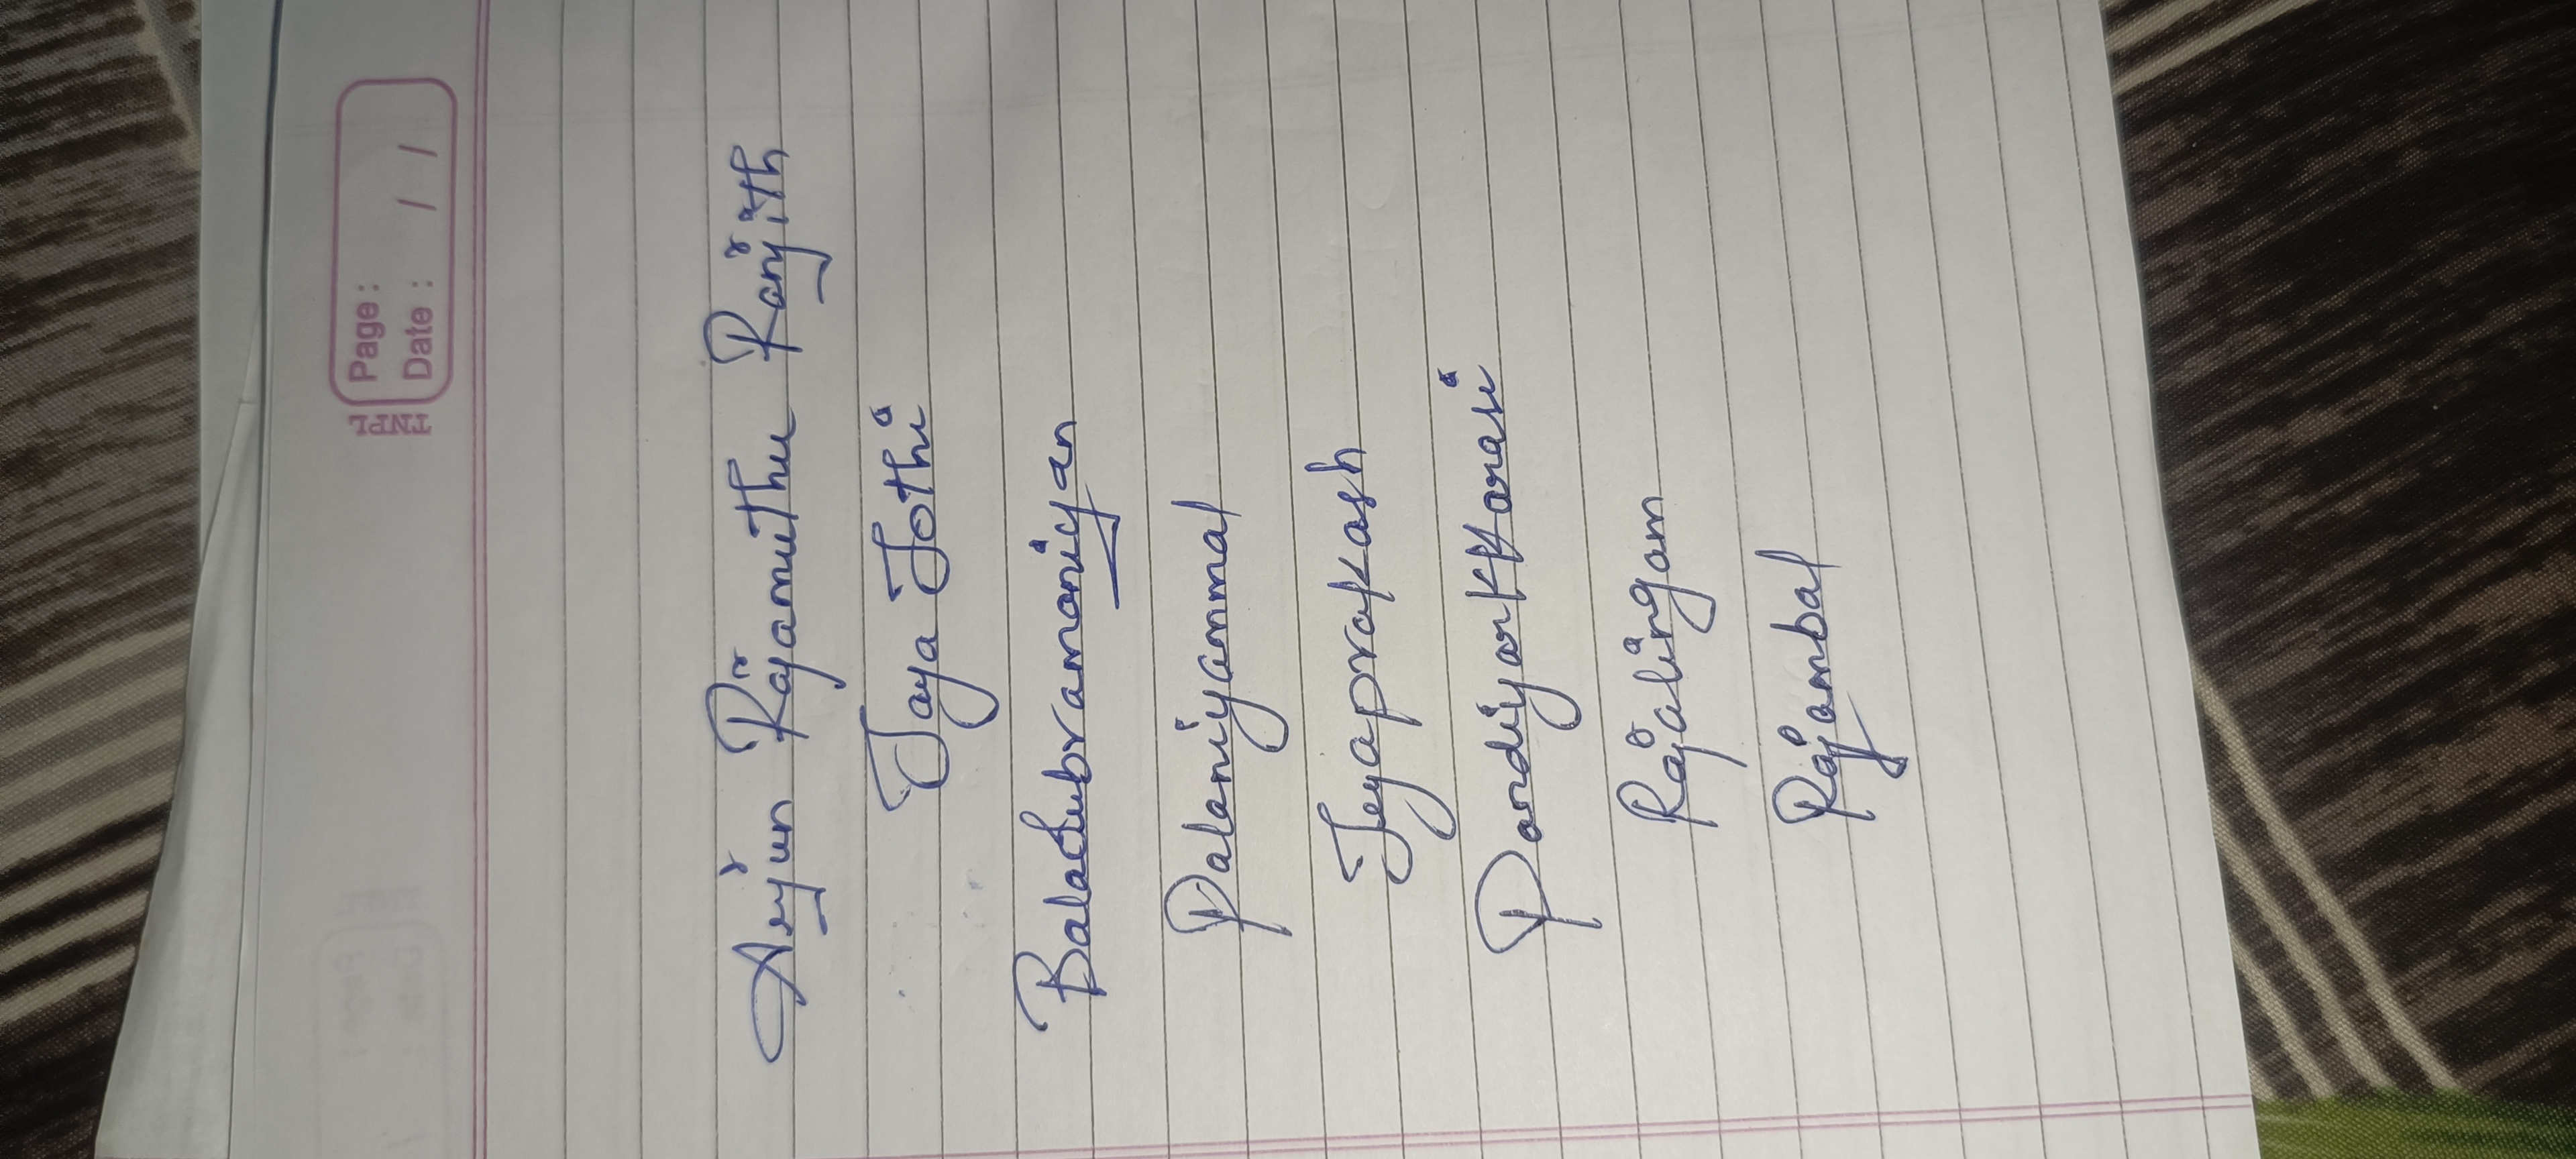 Page :
Date : / /
Arjun Rajamuthu Ranjith
Jaya Jothi
Balasubramaniyan
Palaniyammal
Jeyaprakash
Pandiyarkkarasi
Rajalingam
Rajambal